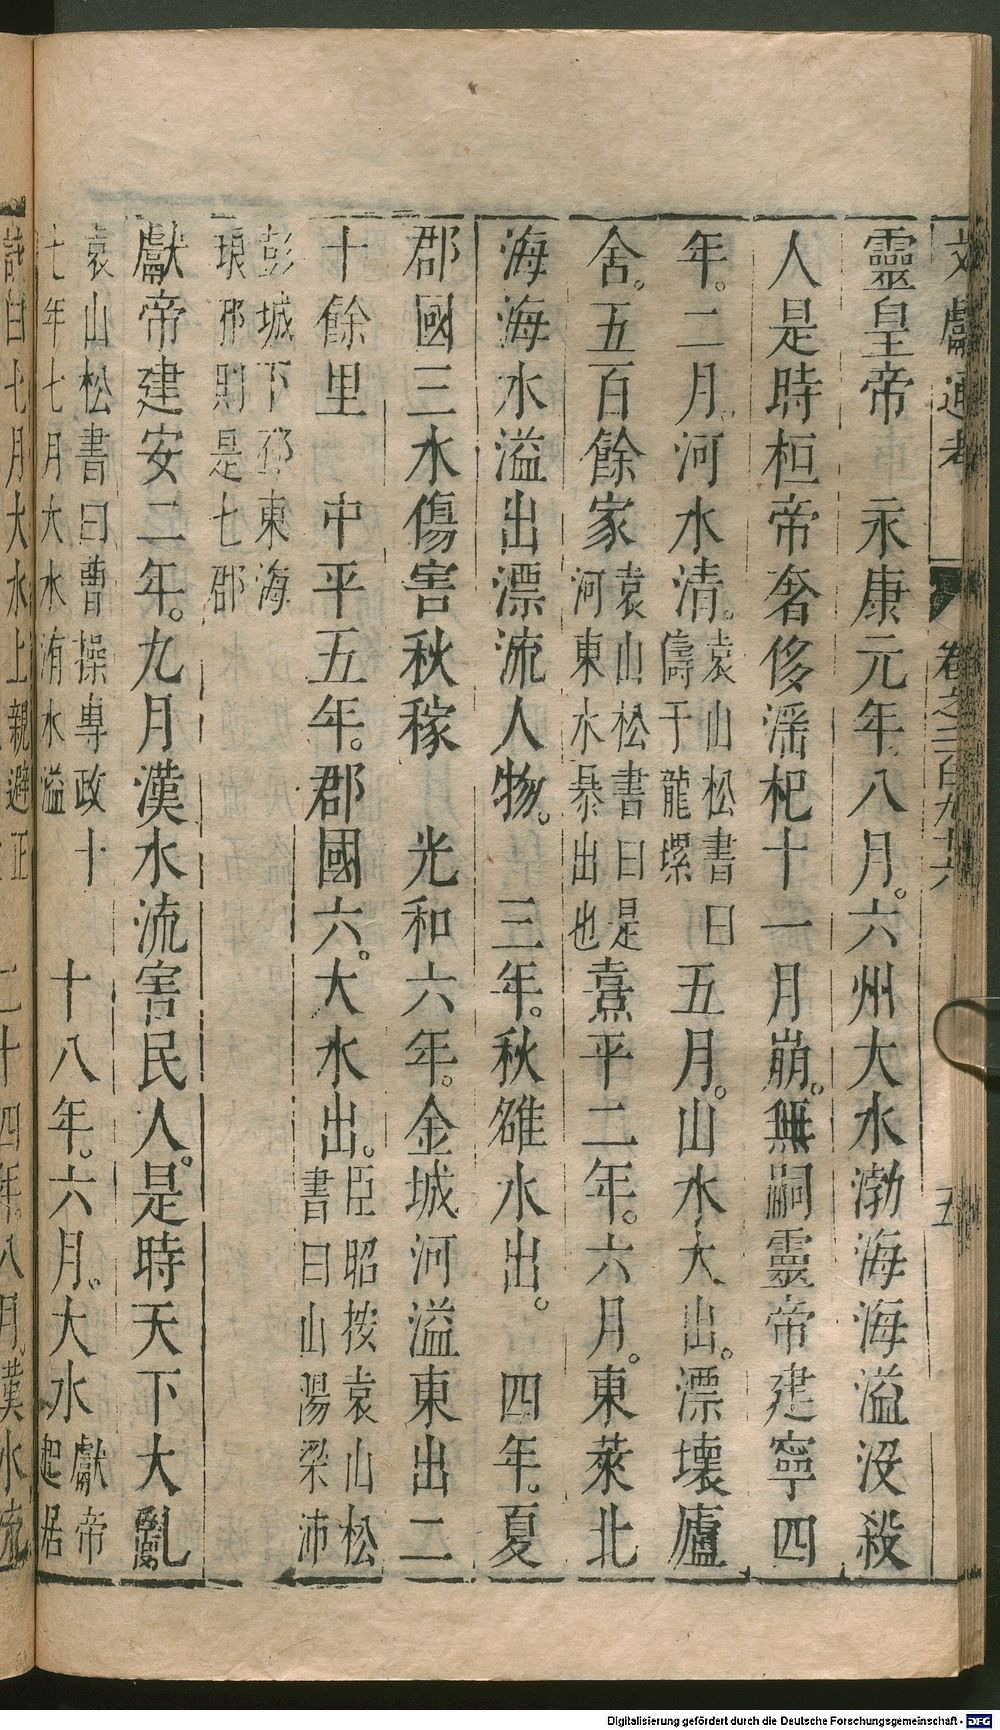 文獻通考 卷之二百九十六 五
靈皇帝 永康元年八月。六州大水渤海海溢没殺
人是時桓帝奢侈淫祀十一月崩。無嗣靈帝建寧四
年。二月河水清。袁山松書曰儔于龍螺五月。山水大出。漂壞廬
舍。五百餘家袁山松書曰是河東水暴出也熹平二年。六月。東萊北
海海水溢出漂流人物。 三年。秋雒水出。 四年。夏
郡國三水傷害秋稼 光和六年。金城河溢東出二
十餘里 中平五年。郡國六。大水出。臣昭按袁山松書曰山陽梁沛
彭城下邳東海琅邪則是七郡
獻帝建安二年。九月漢水流害民人。是時天下大亂
袁山松書曰曹操專政十七年七月大水洧水溢 十八年。六月。大水獻帝起居
註曰七月大水上親避正 二十四年。八月漢水流
Digitalisierung gefördert durch die Deutsche Forschungsgemeinschaft - DFG